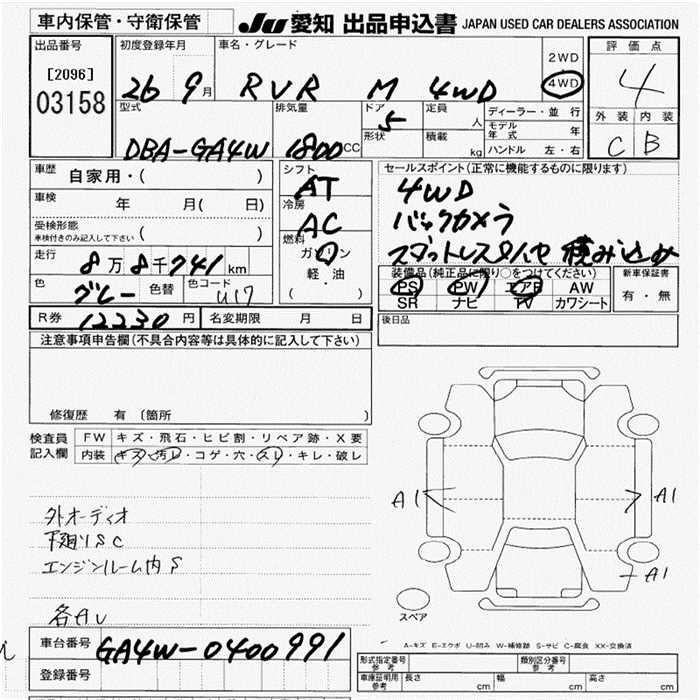 車内保管・守衛保管
JU 愛知 出品申込書 JAPAN USED CAR DEALERS ASSOCIATION
出品番号
[2096]
03158
初度登録年月
26 9月
車名・グレード
RVR M 4WD
2WD
4WD
評価点
4
外装 内装
C B
型式
DBA-GA4W
排気量
1800CC
ドア
5
形状
定員
人
積載
kg
ディーラー・並行
モデル年式 年
ハンドル 左・右
車歴
自家用・( )
車検
年 月( 日)
受検形態
車検付きのみ記入して下さい ( )
走行
8万8千741km
色
グレー
色替
色コード
U17
シフト
AT
冷房
AC
燃料
ガソリン
軽・油
( )
セールスポイント(正常に機能するものに限ります)
4WD
バックカメラ
積み込み
装備品(純正品に限り○をつけてください)
PS PW エアB AW
SR ナビ TV カワシート
新車保証書
有・無
R券 12230円
名変期限 月 日
後日品
注意事項申告欄(不具合内容等は具体的に記入して下さい)
修復歴 有 〔箇所 〕
検査員記入欄
FW キズ・飛石・ヒビ割・リペア跡・X要
内装 キズ・汚レ・コゲ・穴・スレ・キレ・破レ
外オーディオ
下廻りSC
エンジンルーム内S
各AU
A1
A1
A1
スペア
A-キズ E-エクボ U-凹み W-補修跡 S-サビ C-腐食 XX-交換済
車台番号
GA4W-0400991
登録番号
形式指定番号
参考
類別区分番号
参考
車庫証明用
参考
長さ cm
幅 cm
高さ cm